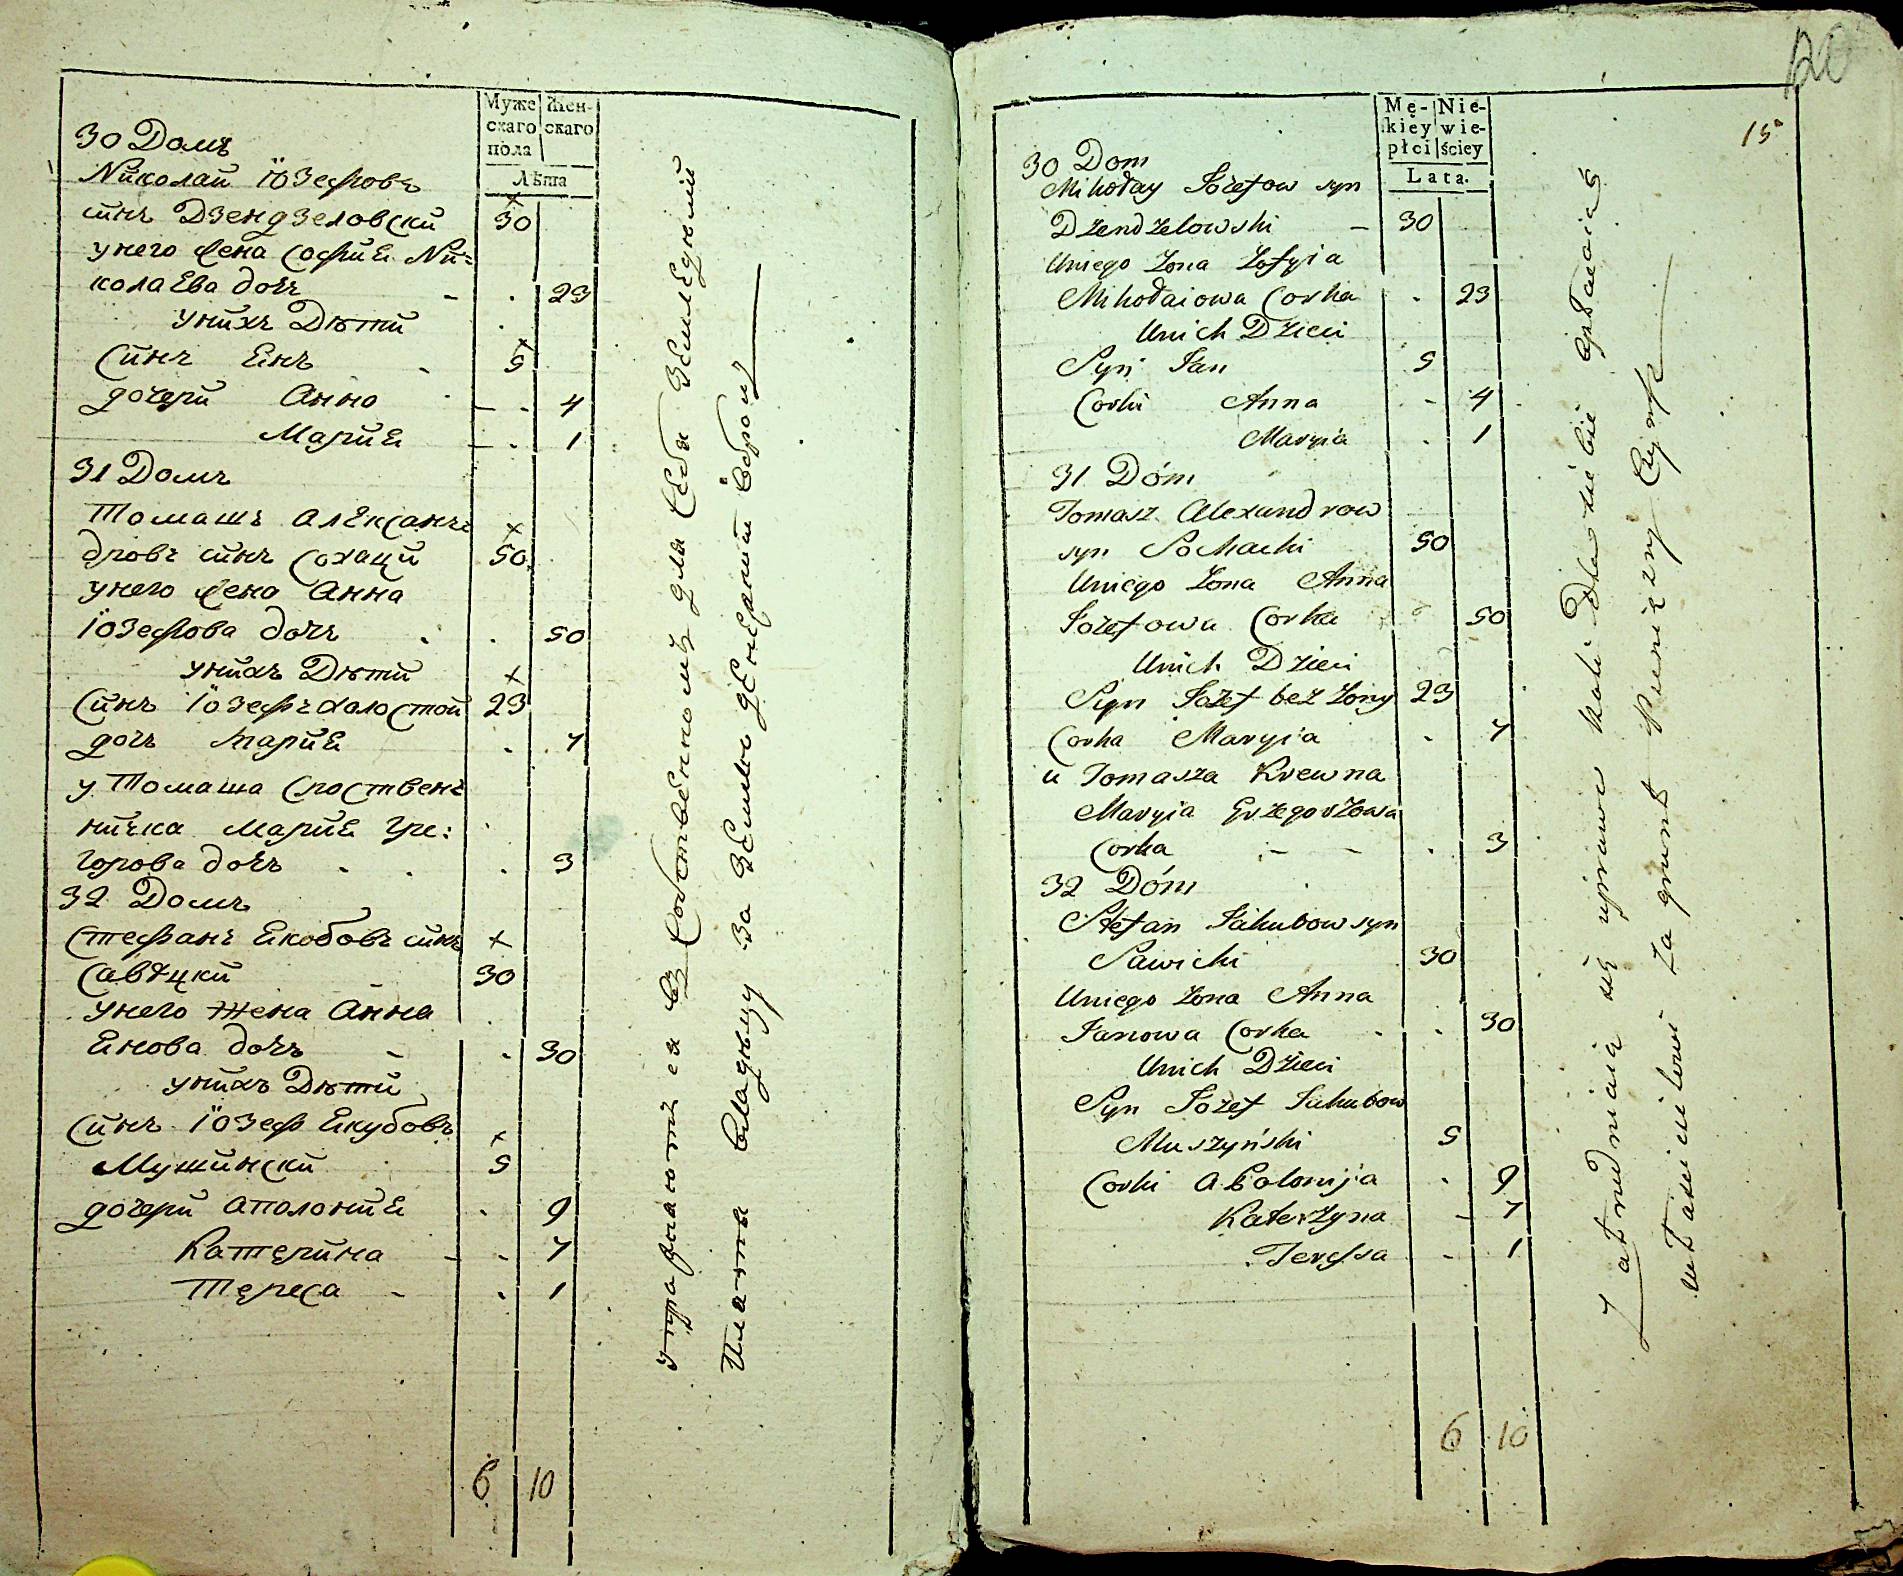 Муже Жен-
скаго скаго
пола
Лѣта
30 Домъ
Николай Іозефовъ
синъ Дзендзеловски 30
у него жена Софиѣ Ни=
колаева дочъ - . 23
у нихъ Дѣти .
Синъ Енъ . 5
дочери Анно - . 4
Мариѣ - . 1
31 Домъ
Томашъ Алексанъ=
дровъ синъ Сохацки 50
у него жено Анна
Іозефова дочъ . . 50
у нихъ Дѣти
Синъ Іозефъ холостой 23
дочъ Мариѣ . 7
у Томаша Сроствень
ничка Мариѣ Гре:
горова дочъ . . . 3
32 Домъ
Стефанъ Екобовъ синъ
Савѣцки 30
у него жена Анна
Енова дочъ - . 30
у нихъ Дѣти
Синъ Іозеф Екубовъ
Мушински 5
дочери Аполониѣ . 9
Катерина - . 7
Тереса - . 1
6 10
упражнаютця въ Собственномъ для Себя Земледелии
платы владѣлцу за Землю денежний оброкъ
20
15
Mę- Nie-
kiéy wie-
płci ściey
Lata.
30 Dom
Mikołay Jozefow syn
Dzendzelowski - 30
Uniego Zona Zofyia
Mikołaiowa Corka . 23
Unich Dzieci
Syn Jan 5
Corki Anna - 4
Maryia . 1
31 Dóm
Tomasz Alexandrow
syn Sochacki 50
Uniego Zona Anna
Jozefowa Corka 50
Unich Dzieci
Syn Jozef bez Zony 23
Corka Maryia . 7
u Tomasza Krewna
Maryia Grzegorzowa
Corka - - . 3
32 Dóm
Stefan Jakubow syn
Sawicki 30
Uniego Zona Anna
Janowa Corka . . 30
Unich Dzieci
Syn Jozef Jakubow
Muszyński 5
Corki Apolonija . 9
Katerzyna - 7
Teressa - 1
6 10
Zatrudniaią się uprawą Roli dla siebie opłacaią
właścicielowi za grunt Pienięzny Czynsz